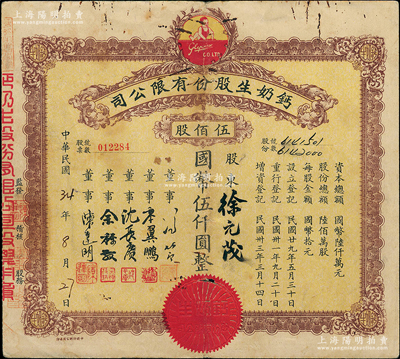 上海阳明拍卖
www.yangmingauction.com
CO.LTD.
司公限有份股生奶鈣
股佰伍
股票號數 012284
股份號數 6141501
6142000
股東 徐元茂
國幣伍仟圓整
資本總額 國幣陸仟萬元
股份總額 陸佰萬股
每股金額 國幣拾元
設立登記 民國廿九年五月三十日
重行登記 民國卅二年九月二十日
增資登記 民國卅三年三月十四日
董事
董事 李翼鵬
董事 沈長慶
董事
董事 陳達明
中華民國 34 年 8 月 21 日